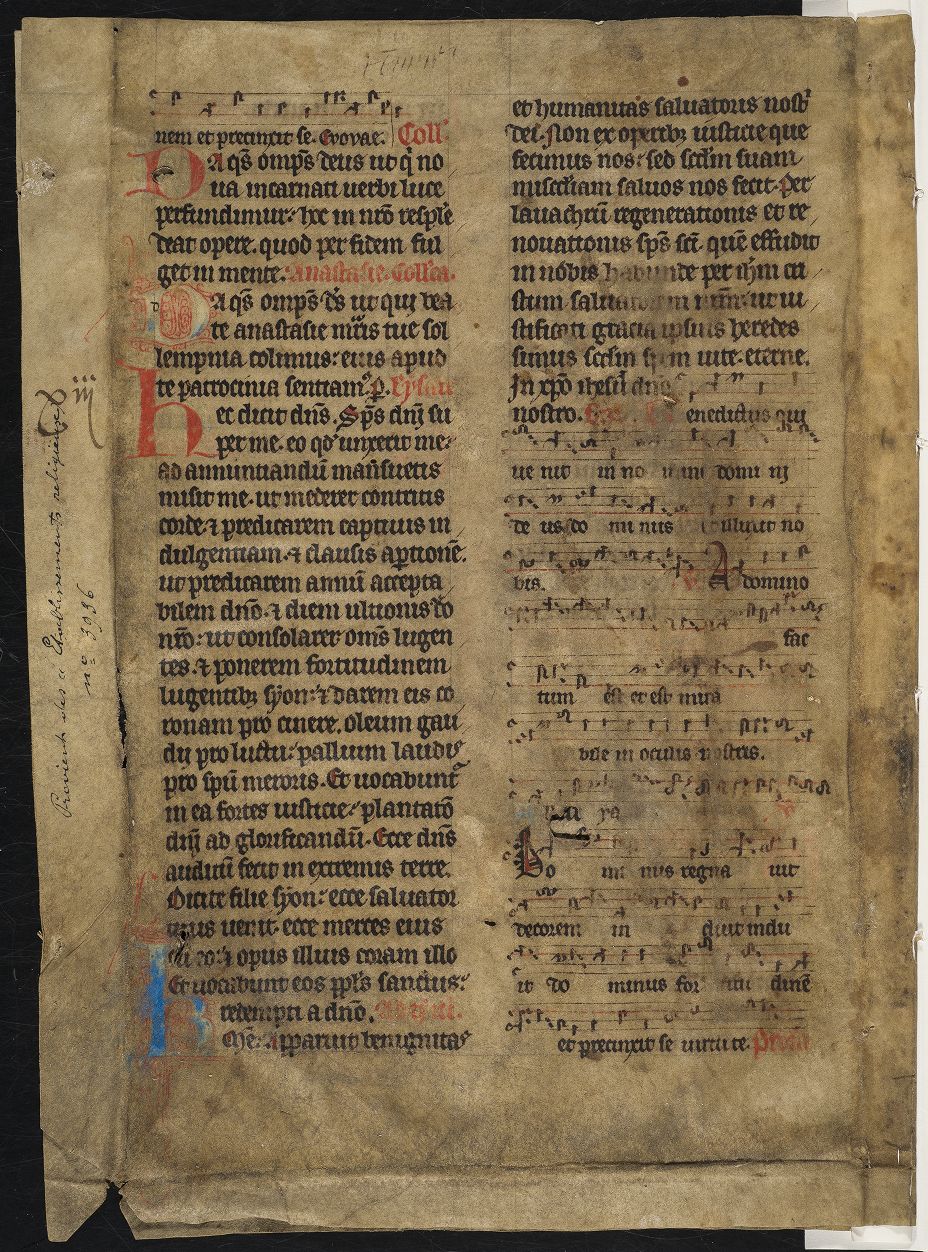 nem et precinxit se. Evovae. Coll'
Da qs̄ omp̄s deus ut q̇ no
ua incarnati uerbi luce
perfundimur: hoc in nr̄o resplē
deat opere. quod per fidem ful
get in mente. Anastasie. Coll'ca.
Da qs̄ omp̄s ds̄ ut qui bea
te anastasie mr̄is tue sol
lempnia colimus: eius apud
te patrocinia sentiam⁹. p. Ysaie
Hec dicit dn̄s. Sp̄s dnī su
per me. eo qd' unxerit me:
ad annuntiandū mansuetis
misit me. ut mederer contritis
corde. ⁊ predicarem captiuis in
dulgentiam. ⁊ clausis aptionē.
ut predicarem annū accepta
bilem dn̄o. ⁊ diem ultionis do
nr̄o: ut consolarer om̄s lugen
tes. ⁊ ponerem fortitudinem
lugentibȝ syon: ⁊ darem eis co
ronam pro cinere. oleum gau
dij pro luctu: pallium laudis
pro sp̄u meroris. Et uocabunt᷑
in ea fortes iusticie: plantatō
dnī ad glorificandū. Ecce dn̄s
auditū fecit in extremis terre.
Dicite filie syon: ecce saluator
tuus uenit. ecce merces eius
cū eo: ⁊ opus illius coram illo
Et uocabunt eos ppl̄s sanctus:
redempti a dn̄o. Ad titū.
Kmē. Apparuit benignitas
et humanitas saluatoris nostr̄
dei. Non ex operibȝ iusticie que
fecimus nos: sed scd̄m suam
miscd̄iam saluos nos fecit. Per
lauachrū regenerationis et re
nouationis sp̄s sc̄i. quē effudit
in nobis habunde per ihm̄ cri
stum saluatorem nr̄m: ut iu
stificati gratia ipsius heredes
simus scd̄m spem uite. eterne.
In xp̄o ihesu dn̄o
nostro. enedictus qui
ue nit in no mini domi nj
de us do mi nus illuxit no
bis. A domino
fac
tum est et est mira
bile in oculis nostris.
Do mi nus regna uit
decorem in duit indu
it do minus for titu dinē
et precinxit se uirtu te. Prosa
Provient des a Etablissements religieux
nº 3936